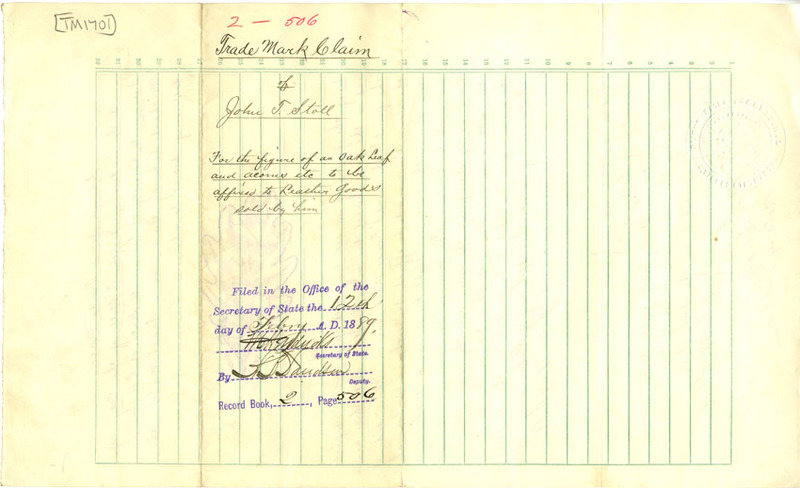 [TM1701]
2 - 506
Trade Mark Claim
of
John T. Stoll
For the figure of an Oak Leaf
and acorns etc to be
affixed to Leather Goods
sold by him
Filed in the Office of the
Secretary of State the 12th
day of Feby A. D. 1889.
Secretary of State.
By
Deputy.
Record Book, 2, Page 506